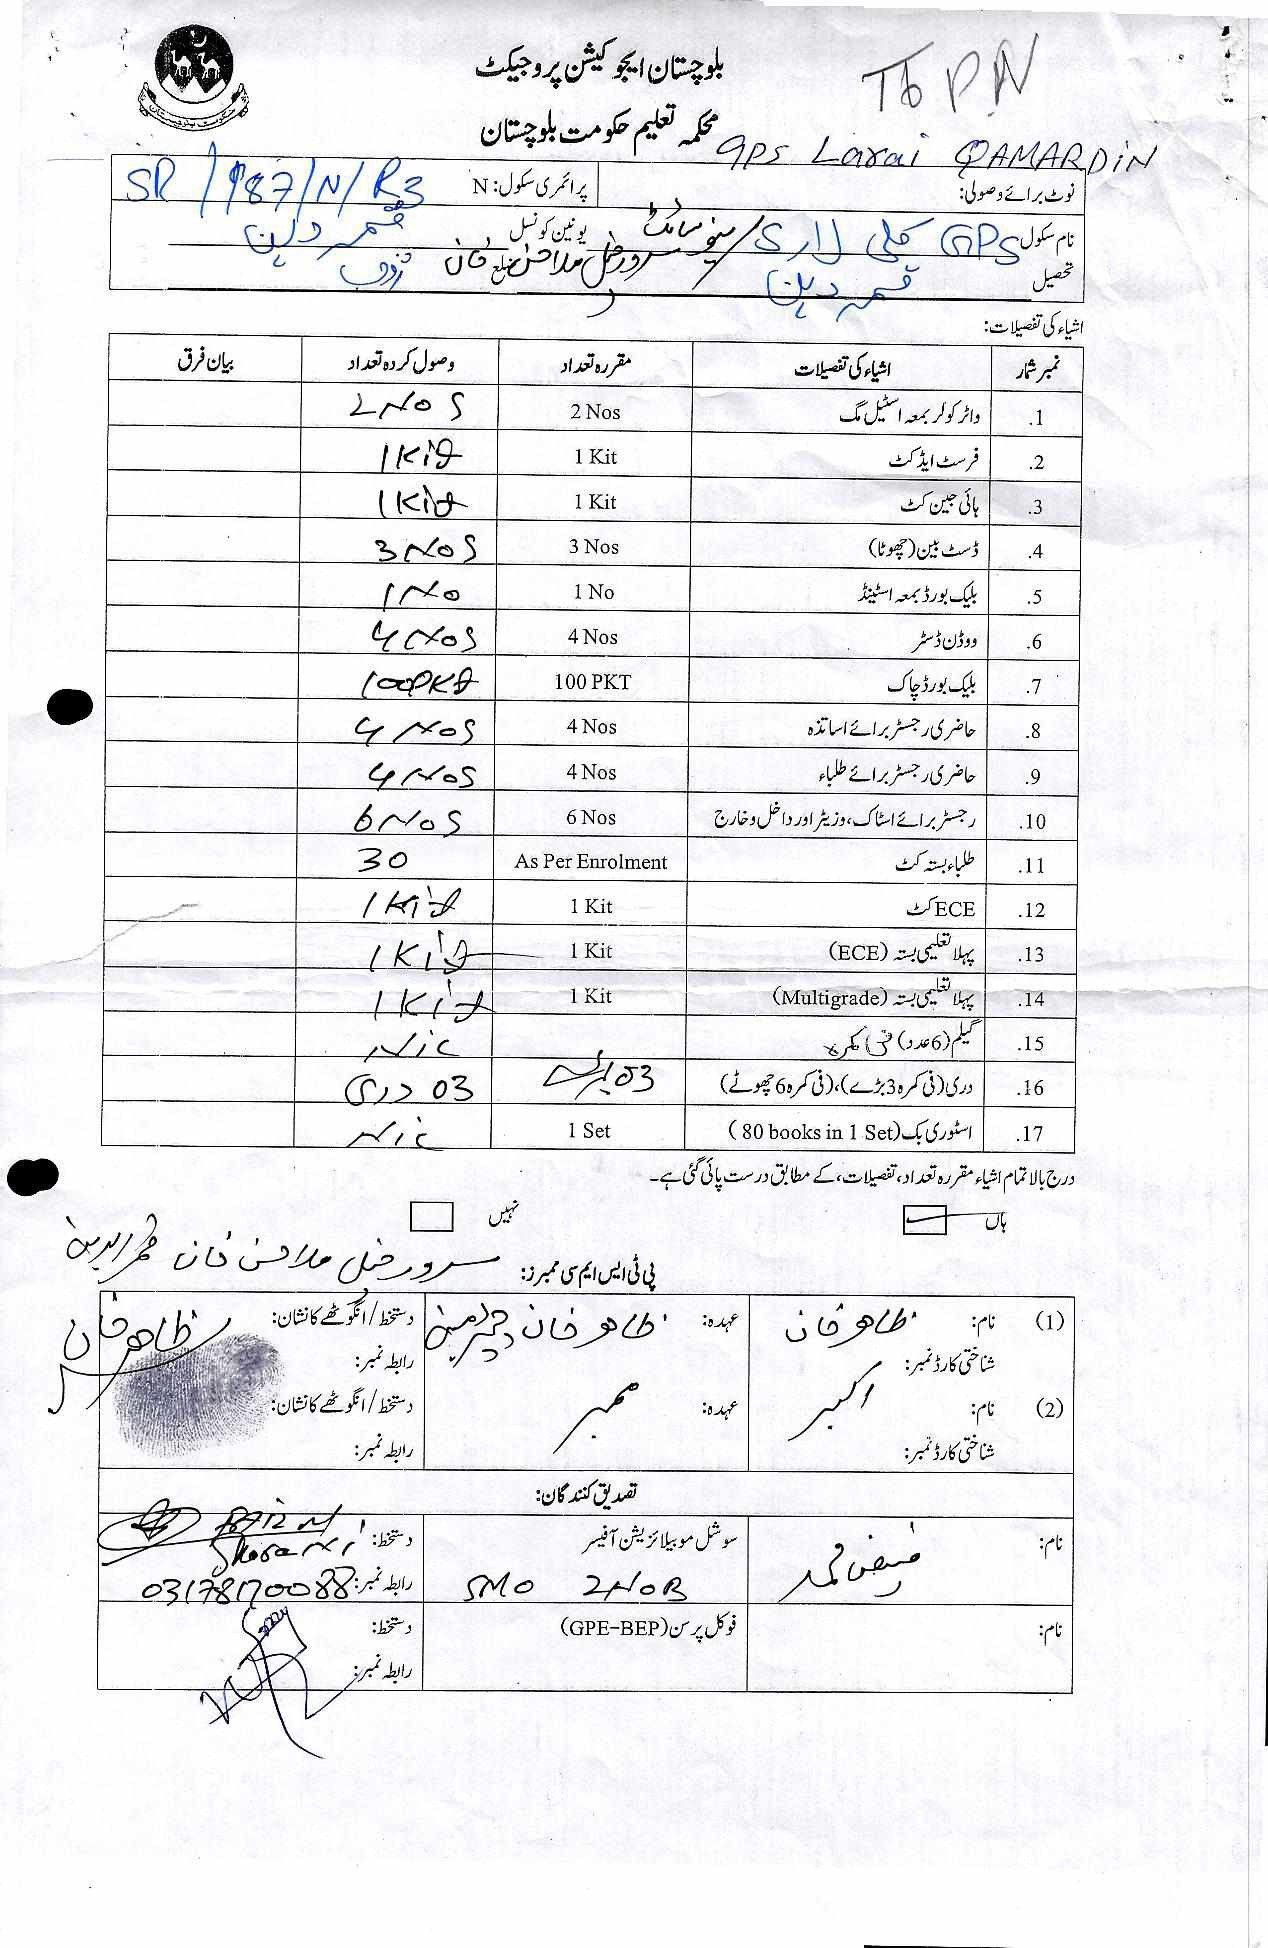 بلوچستان ایجوکیشن پروجیکٹ
محکمہ تعلیم حکومت بلوچستان
حکومت بلوچستان
GPS Larai QAMARDIN
نوٹ برائے وصولی:
پرائمری سکول: N SR/187/N/R3
نام سکول GPS کلی لاری نیو سائٹ یونین کونسل قمر دین
سرور خیل ملا حسن خان
تحصیل قمر دین ضلع ژوب
اشیاء کی تفصیلات:
نمبر شمار اشیاء کی تفصیلات مقررہ تعداد وصول کردہ تعداد بیان فرق
1. واٹر کولر بمعہ اسٹیل مگ 2 Nos 2 NOS
2. فرسٹ ایڈ کٹ 1 Kit 1 Kit
3. ہائی جین کٹ 1 Kit 1 Kit
4. ڈسٹ بین (چھوٹا) 3 Nos 3 NOS
5. بلیک بورڈ بمعہ اسٹینڈ 1 No 1 No
6. ووڈن ڈسٹر 4 Nos 4 NOS
7. بلیک بورڈ چاک 100 PKT 100 PKt
8. حاضری رجسٹر برائے اساتذہ 4 Nos 4 NOS
9. حاضری رجسٹر برائے طلباء 4 Nos 4 NOS
10. رجسٹر برائے اسٹاک، وزیٹر اور داخل و خارج 6 Nos 6 NOS
11. طلباء بستہ کٹ As Per Enrolment 30
12. ECE کٹ 1 Kit 1 Kit
13. پہلا تعلیمی بستہ (ECE) 1 Kit 1 Kit
14. پہلا تعلیمی بستہ (Multigrade) 1 Kit 1 Kit
15. گیلم (6 عدد) فی کمرہ Nil
16. دری (فی کمرہ 3 بڑے)، (فی کمرہ 6 چھوٹے) 03 بڑے 03 دری
17. اسٹوری بک (80 books in 1 Set) 1 Set Nil
درج بالا تمام اشیاء مقررہ تعداد، تفصیلات، کے مطابق درست پائی گئی ہے۔
ہاں نہیں
پی ٹی ایس ایم سی ممبرز: سرور خیل ملا حسن خان قمر الدین
(1) نام: ظاہر خان عہدہ: ظاہر خان چیرمین دستخط / انگوٹھے کا نشان: ظاہر خان
شناختی کارڈ نمبر: رابطہ نمبر:
(2) نام: اکبر عہدہ: ممبر دستخط / انگوٹھے کا نشان:
شناختی کارڈ نمبر: رابطہ نمبر:
تصدیق کنندگان:
نام: فیض محمد سوشل موبیلائزیشن آفیسر دستخط:
SMO ZHOB رابطہ نمبر: 03178170088
نام: فوکل پرسن (GPE-BEP) دستخط:
رابطہ نمبر: